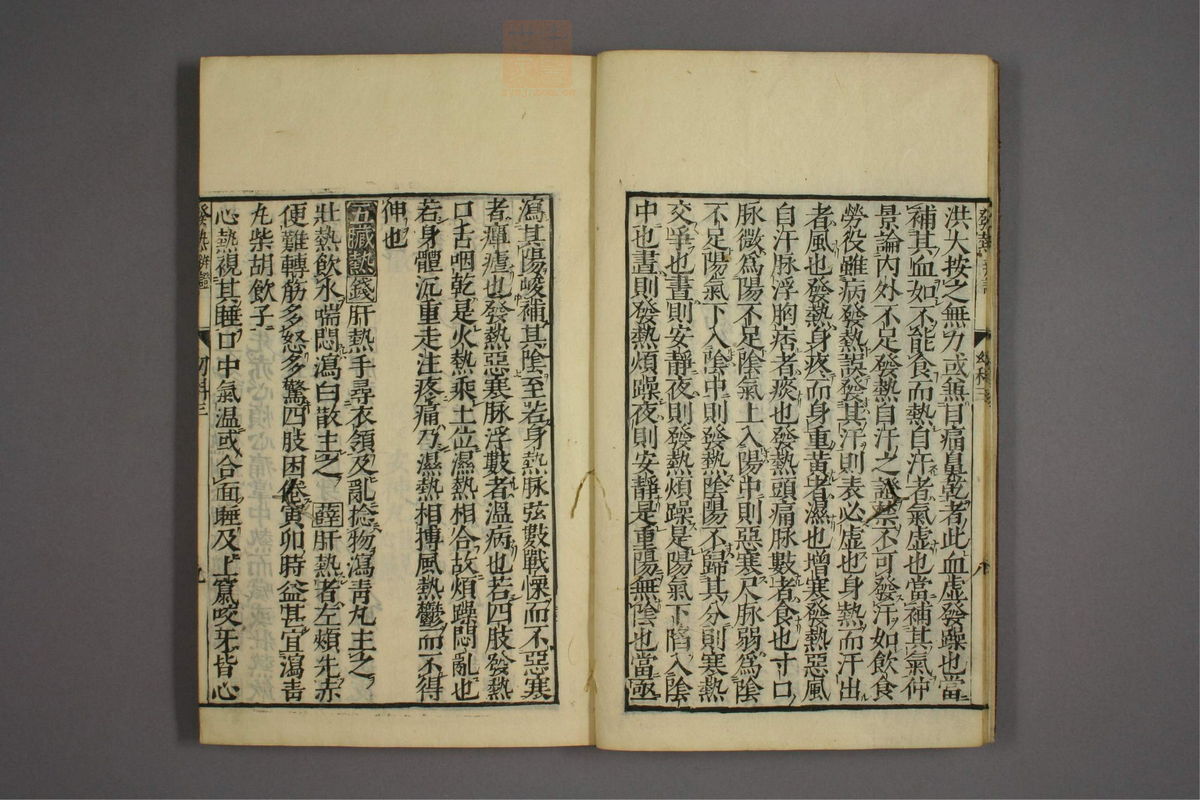 洪大按之無力或無目痛鼻乾者此血虛發躁也當
補其血如不能食而熱自汗者氣虛也當補其氣仲
景論内外不足發熱自汗之證禁不可發汗如飲食
勞役雖病發熱誤發其汗則表必虛也身熱而汗出
者風也發熱身疼而身重黃者濕也增寒發熱惡風
自汗脉浮胸痞者痰也發熱頭痛脉數者食也寸口
脉微爲陽不足陰氣上入陽中則惡寒尺脉弱爲陰
不足陽氣下入陰中則發熱陰陽不歸其分則寒熱
交爭也晝則安靜夜則發熱煩躁是陽氣下陷入陰
中也晝則發熱煩躁夜則安靜是重陽無陰也當亟
瀉其陽峻補其陰至若身熱脉弦數戰慄而不惡寒
者癉瘧也發熱惡寒脉浮數者溫病也若四肢發熱
口舌咽乾是火熱乘土位濕熱相合故煩躁悶亂也
若身體沉重走注疼痛乃濕熱相搏風熱鬱而不得
伸也
五臟熱錢肝熱手尋衣領及亂捻物瀉青丸主之
壯熱飲水喘悶瀉白散主之薛肝熱者左頰先赤
便難轉筋多怒多驚四肢困倦寅卯時益甚宜瀉青
丸柴胡飲子
心熱視其睡口中氣溫或合面睡及上竄咬牙皆心
發熱辨證
幼科三
九